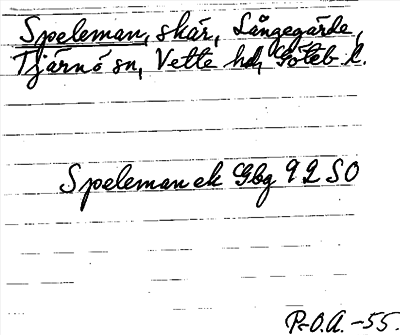 Speleman, skär, Långegärde,
Tjärnö sn, Vette hd, Göteb l.
Speleman ek Gbg 9 2 SO
P-O.A. -55.